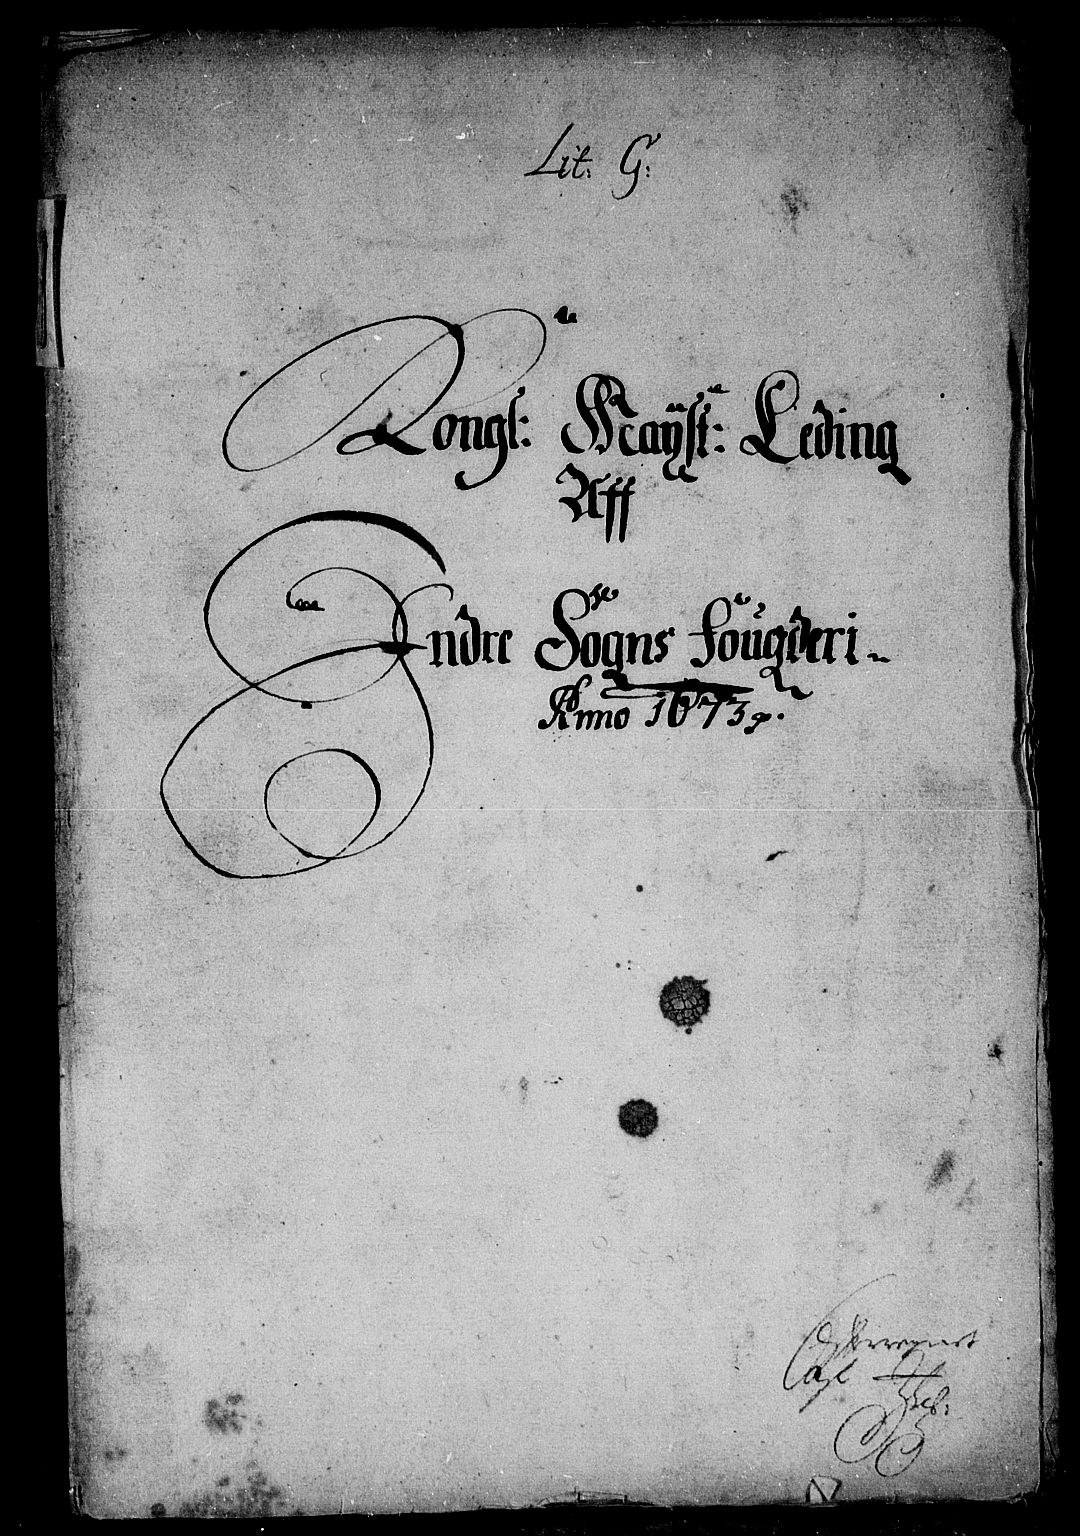 Lit: G:
Kongl: Mayst: Leding
Aff
Indre Sogns fougderi
Anno 1673